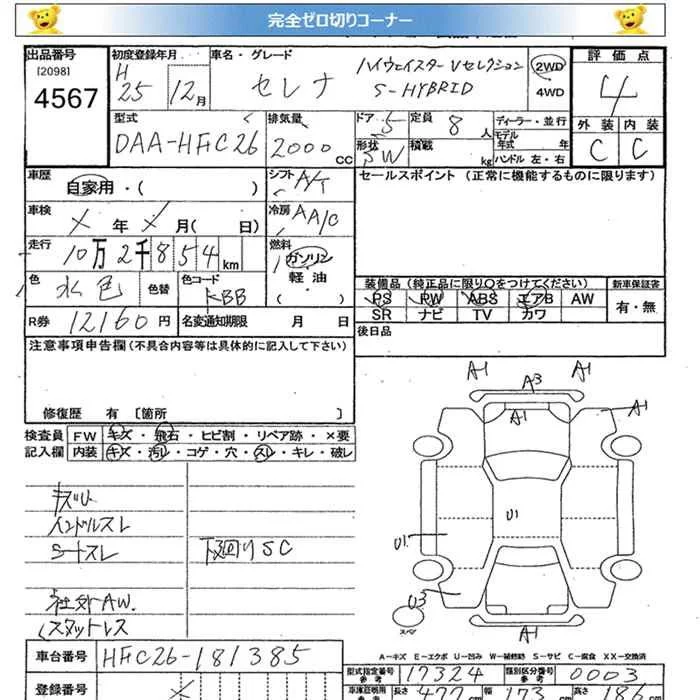 完全ゼロ切りコーナー
出品番号
[2098]
4567
初度登録年月
H
25 12月
車名・グレード
セレナ
ハイウェイスター Vセレクション
S-HYBRID
2WD
4WD
評価点
4
外装 内装
C C
型式
DAA-HFC26
排気量
2000 CC
ドア 5
形状 SW
定員 8人
積載 kg
ディーラー・並行
モデル年式 年
ハンドル 左・右
車歴
自家用・( )
シフト A/T
セールスポイント (正常に機能するものに限ります)
車検
X 年 X 月( 日)
冷房 AAC
走行
10万2千854km
燃料
ガソリン
軽油
( )
色 水色
色替
色コード
KBB
装備品(純正品に限り○をつけてください)
新車保証書
PS PW ABS エアB AW
SR ナビ TV カワ
有・無
R券 12160円
名変通知期限 月 日
後日品
注意事項申告欄(不具合内容等は具体的に記入して下さい)
修復歴 有 [箇所 ]
検査員記入欄
FW キズ・飛石・ヒビ割・リペア跡・×要
内装 キズ・汚レ・コゲ・穴・スレ・キレ・破レ
キズU
ハンドルスレ
シートスレ
下廻りSC
社外AW.
スタットレス
A1
A3
A1
A1
A1
U1
U1
U3
スペア
A1
A-キズ E-エクボ U-凹み W-補修跡 S-サビ C-腐食 XX-交換済
車台番号 HFC26-181385
型式指定番号 参考 17324
類別区分番号 参考 0003
登録番号
車庫証明用 参考 長さ 477cm 幅 173cm 高さ 186